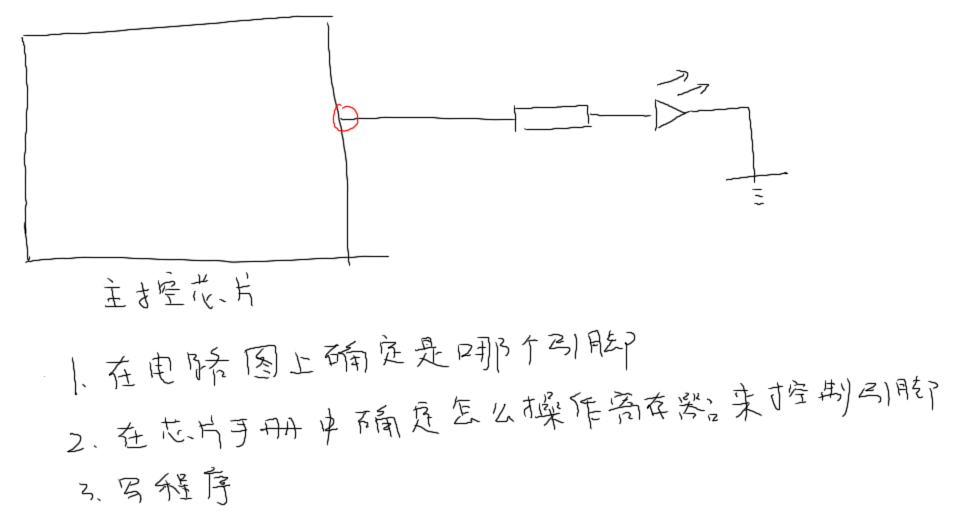 主控芯片
1. 在电路图上确定是哪个引脚
2. 在芯片手册中确定怎么操作寄存器来控制引脚
3. 写程序